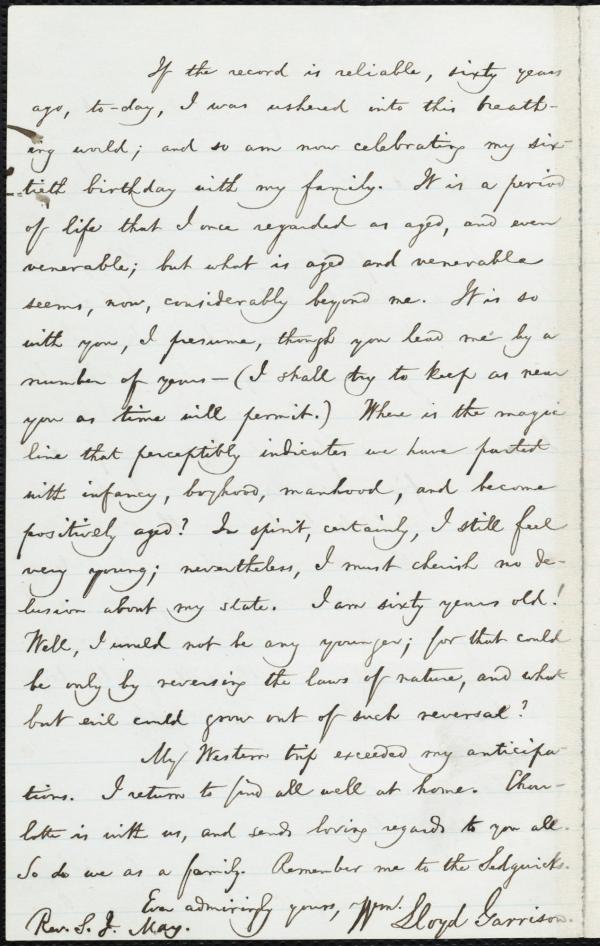 If the record is reliable, sixty years
ago, to-day, I was ushered into this breath-
ing world; and so am now celebrating my six-
tieth birthday with my family. It is a period
of life that I once regarded as aged, and even
venerable; but what is aged and venerable
seems, now, considerably beyond me. It is so
with you, I presume, though you lead me by a
number of years — (I shall try to keep as near
you as time will permit.) Where is the magic
line that perceptibly indicates we have parted
with infancy, boyhood, manhood, and become
positively aged? In spirit, certainly, I still feel
very young; nevertheless, I must cherish no de-
lusion about my state. I am sixty years old!
Well, I would not be any younger; for that could
be only by reversing the laws of nature, and what
but evil could grow out of such reversal?
My Western trip exceeded my anticipa-
tions. I return to find all well at home. Char-
lotte is with us, and sends loving regards to you all.
So do we as a family. Remember me to the Sedgwicks.
Ever admiringly yours, Wm. Lloyd Garrison.
Rev. S. J. May.